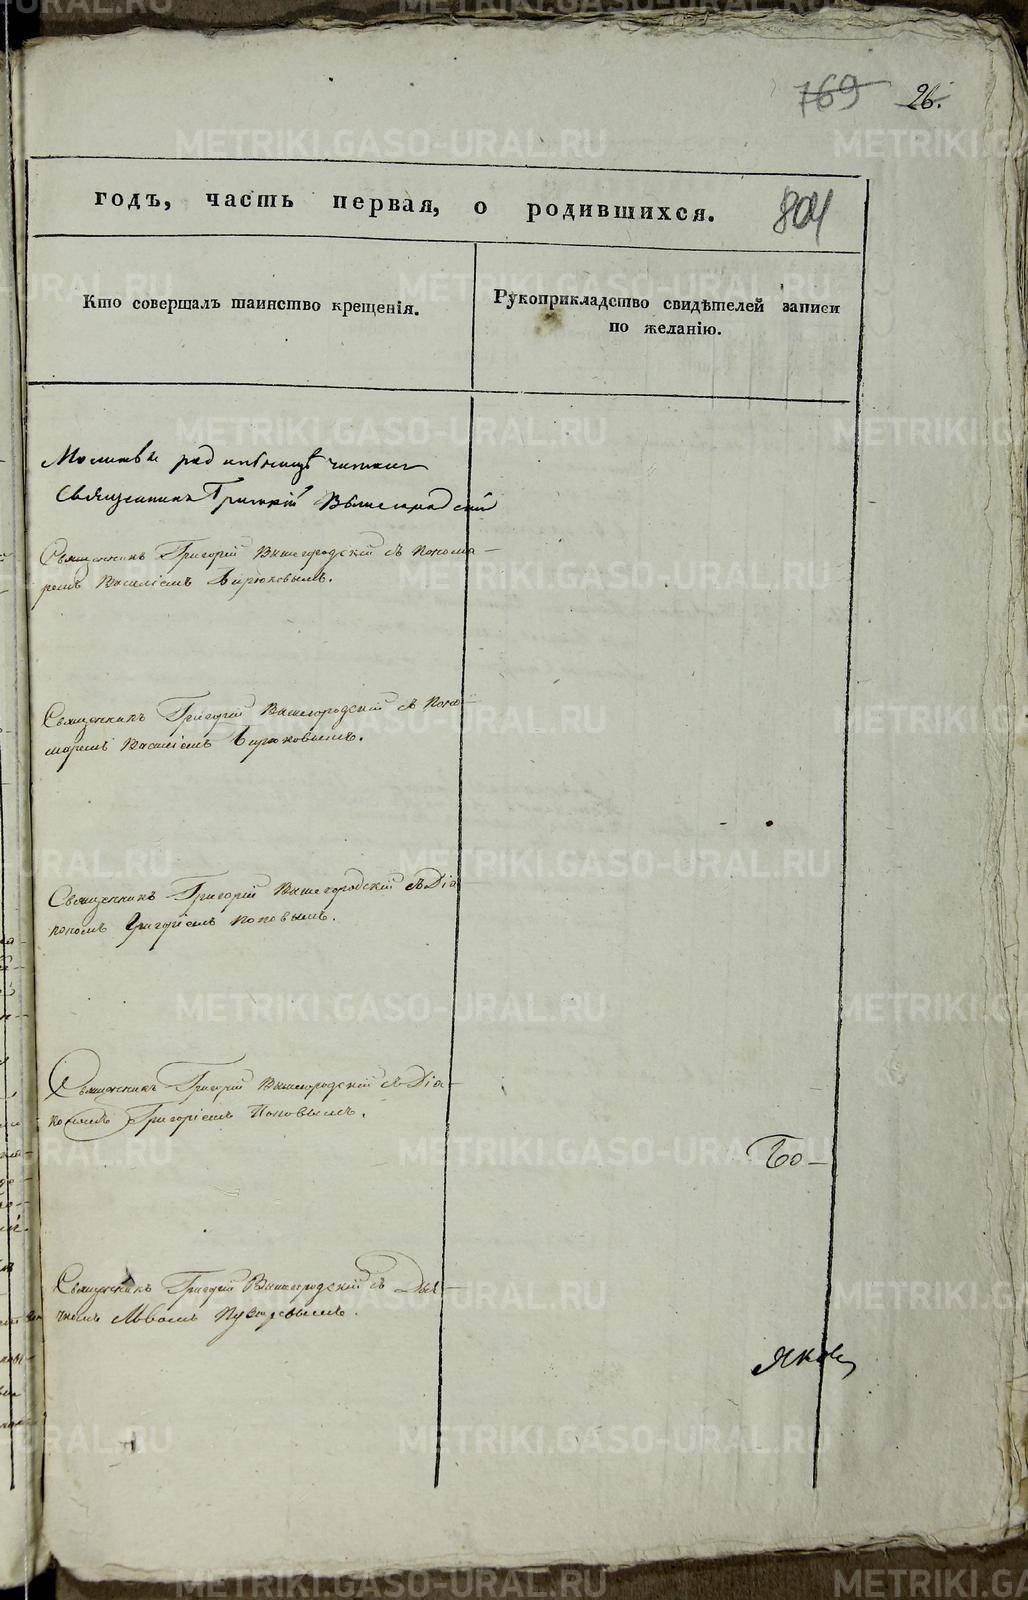 769 26.
годъ, часть первая, о родившихся. 804
Кто совершалъ таинство крещенія.
Рукоприкладство свидѣтелей записи
по желанію.
Священникъ Григорій Вышегородскій
Священникъ Григорій Вышегородскій съ Понома-
ремъ Василіемъ Бирюковымъ.
Священникъ Григорій Вышегородскій съ Поно-
маремъ Василіемъ Бирюковымъ.
Священникъ Григорій Вышегородскій съ Діа
кономъ Григоріемъ Поповымъ.
Священникъ Григорій Вышегородскій съ Діа-
кономъ Григоріемъ Поповымъ.
Бо-
Священникъ Григорій Вышегородскій съ Дья-
чкомъ Львомъ
METRIKI.GASO-URAL.RU